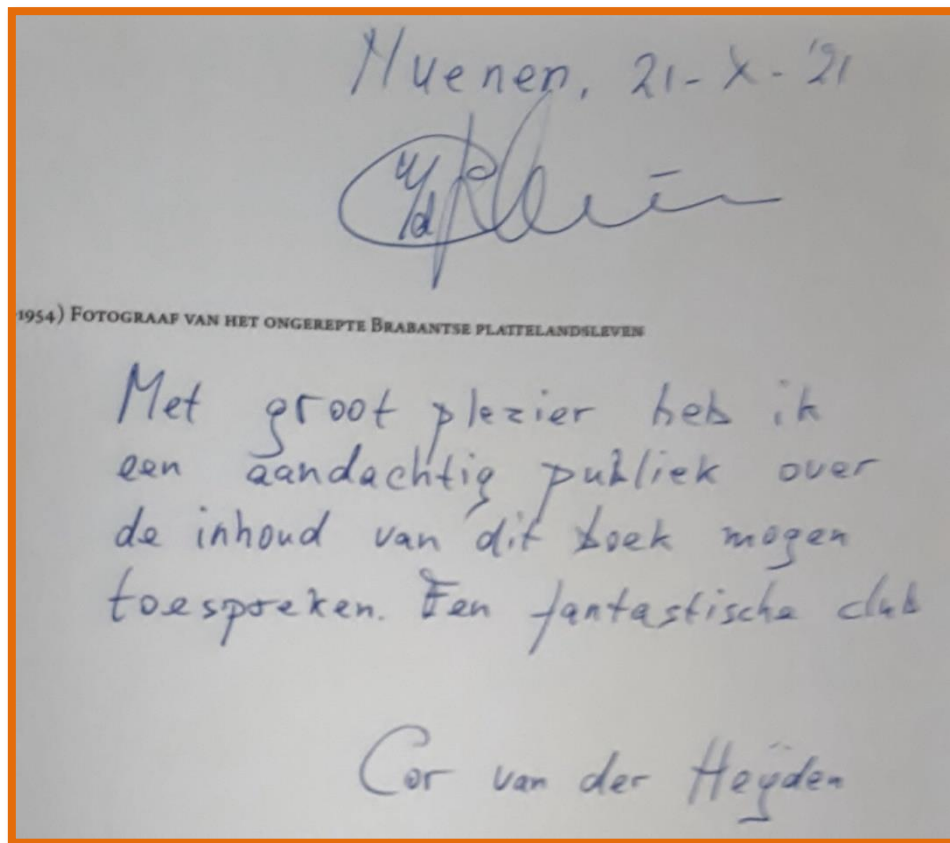 Nuenen, 21-X-'21
1954) Fotograaf van het ongerepte Brabantse plattelandsleven
Met groot plezier heb ik
een aandachtig publiek over
de inhoud van dit boek mogen
toespreken. Een fantastische club
Cor van der Heÿden